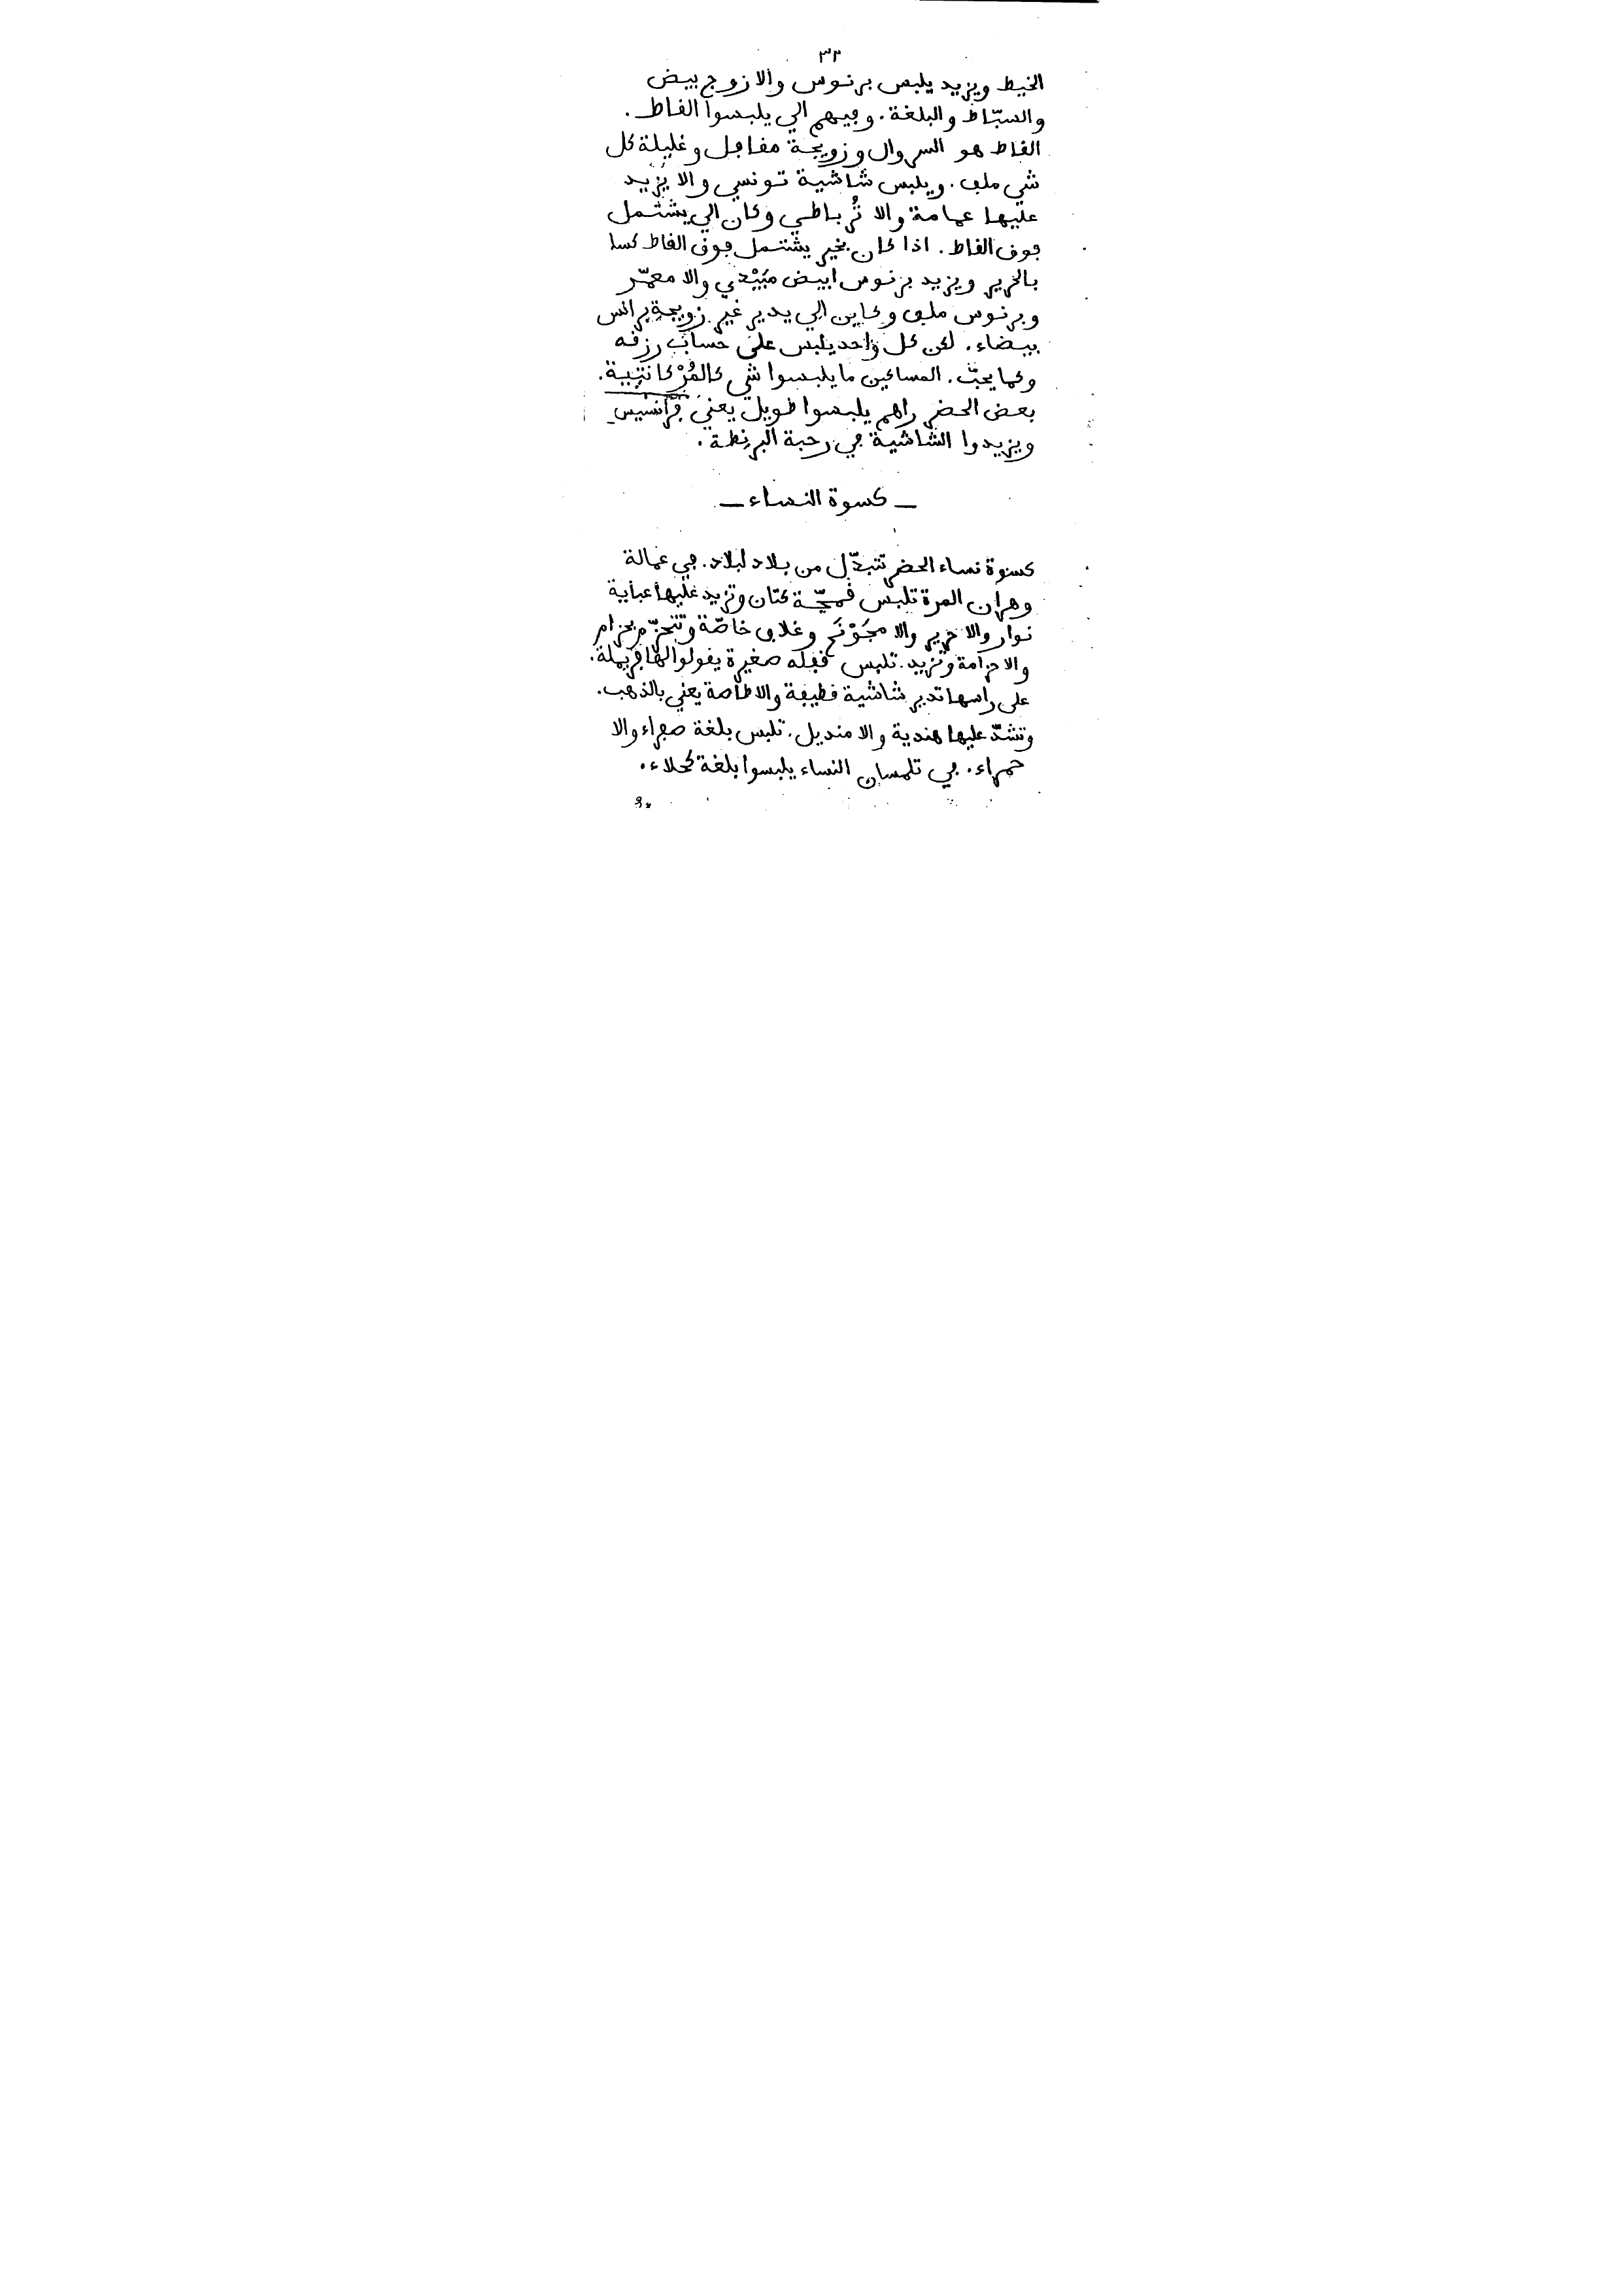 ٣٣
الخيط ويزيد يلبس برنوس والا زوج بيض
والسبّاط والبلغة. وفيهم الي يلبسوا القاط.
القاط هو السروال وزويجة مقافل وغليلة كل
شي ملف. ويلبس شاشية تونسي والا يزيد
عليها عمامة والا تُرباطي وكان الي يشتمل
فوق القاط. اذا كان بخير يشتمل فوق القاط كسا
بالحرير ويزيد برنوس ابيض مَبَيْدي والا معمّر
وبرنوس ملف وكاين الي يدير غير زويجة برانس
بيضاء. لكن كل واحد يلبس على حساب رزقه
وكما يحبّ. المساكين ما يلبسوا شي كالمُرْكانتيية.
بعض الحضر راهم يلبسوا طويل يعني فرانسيس
ويزيدوا الشاشية في رحبة البرنطة.
— كسوة النساء —
كسوة نساء الحضر تتبدّل من بلاد لبلاد. في عمالة
وهران المرة تلبس قمجّة كتان وتزيد عليها عباية
نوار والا حرير والا مجَوْنَح وغلاف خاصّة وتتحزّم بحزام
والا حزامة وتزيد. تلبس قفله صغيرة يقولوا لها فريملة.
على راسها تدير شاشية قطيفة والا طاصة يعني بالذهب.
وتشدّ عليها هندية والا منديل. تلبس بلغة صفراء والا
حمراء. في تلمسان النساء يلبسوا بلغة كحلاء.